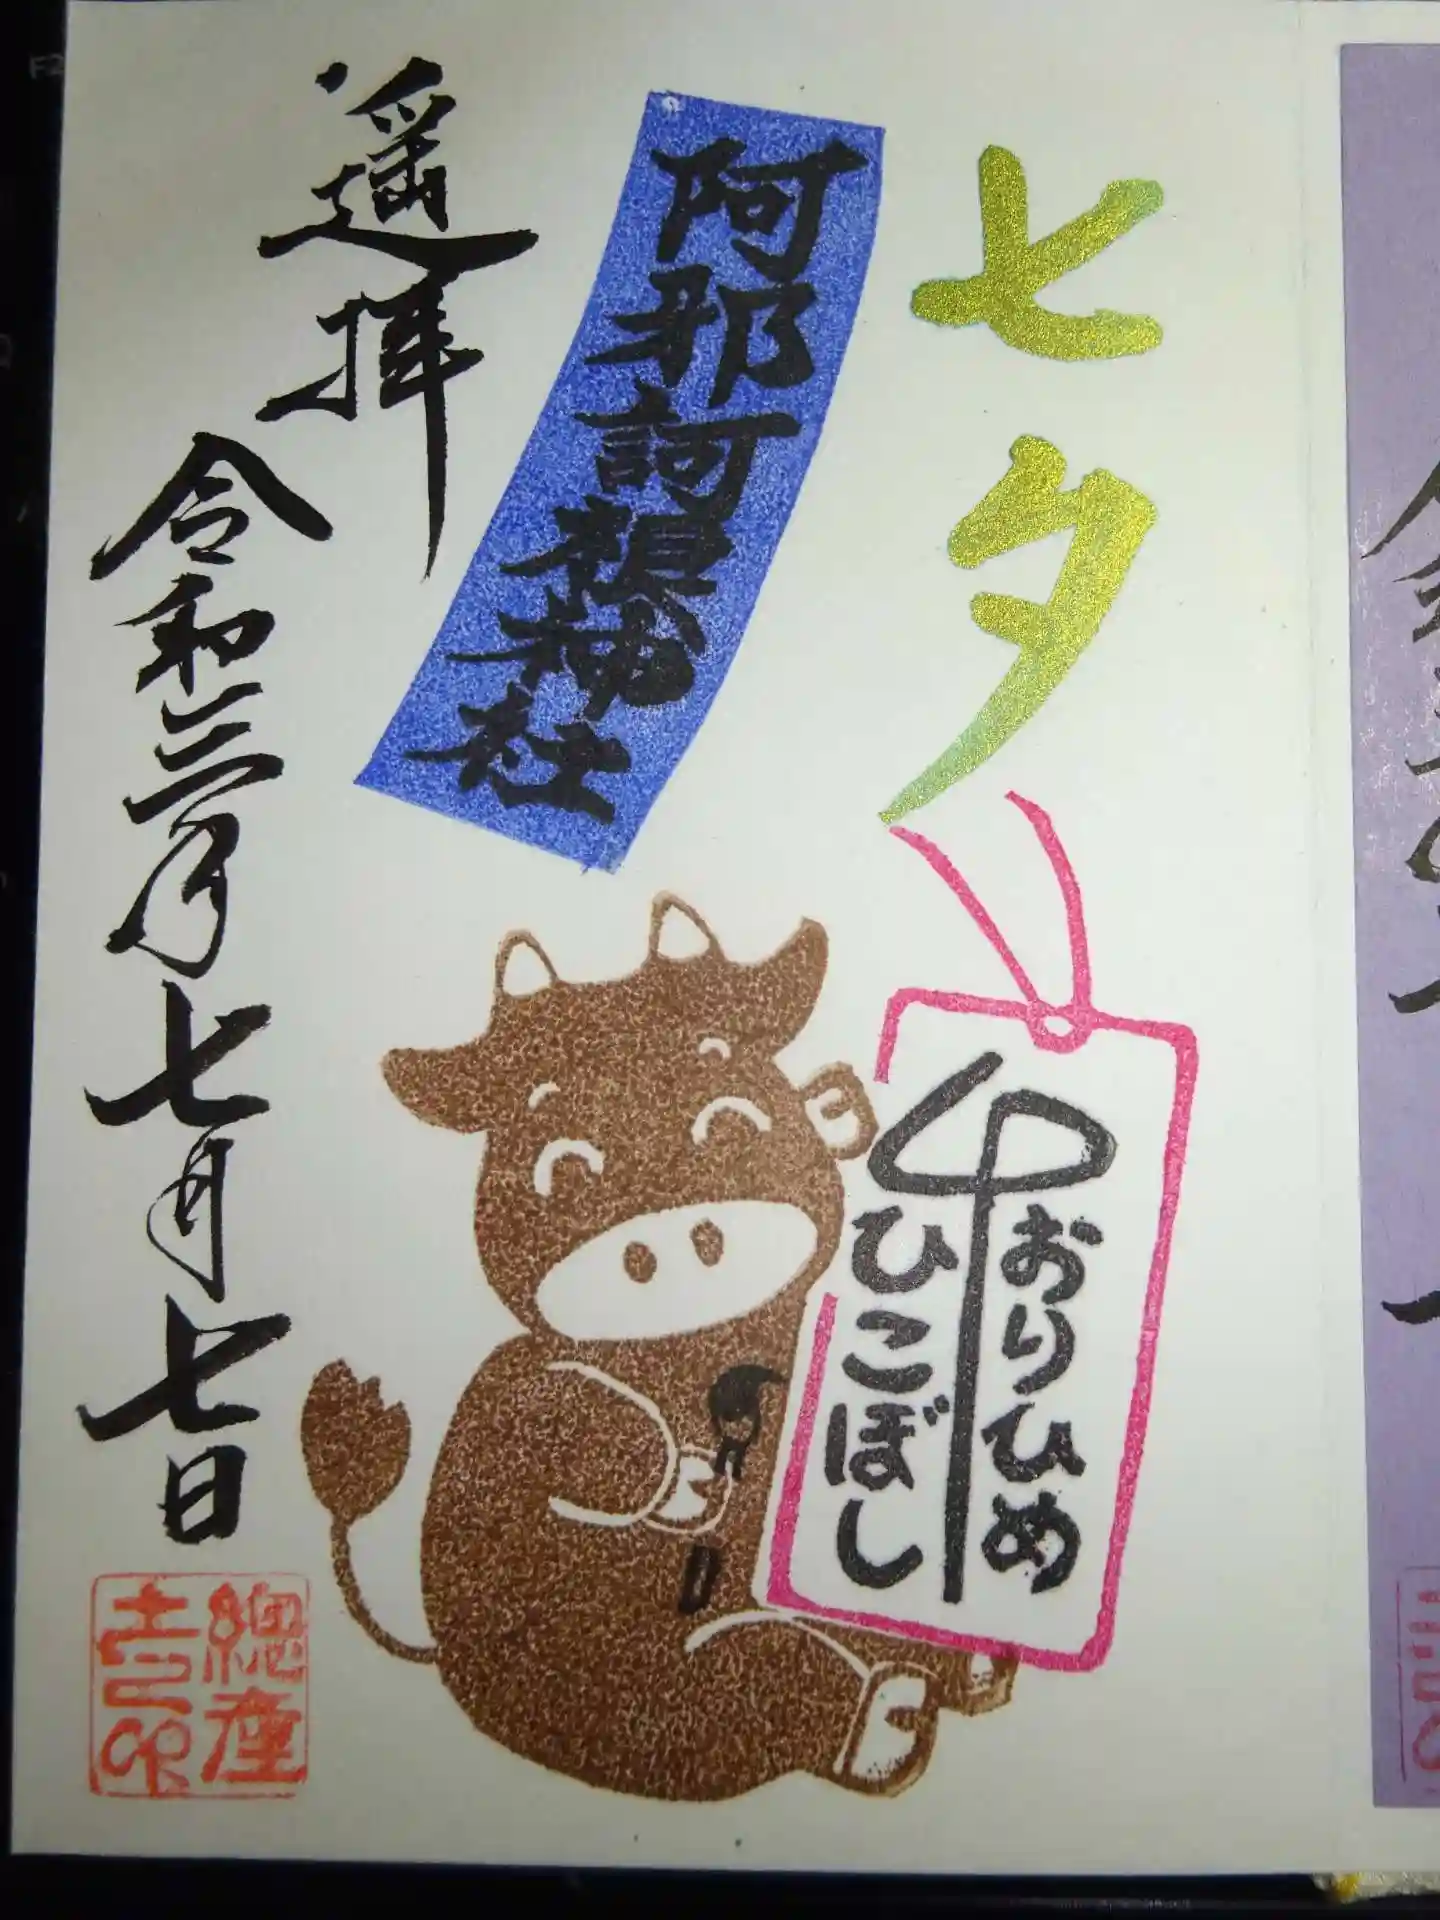 七夕
阿邪訶根神社
おりひめ
ひこぼし
遥拝
令和三年七月七日